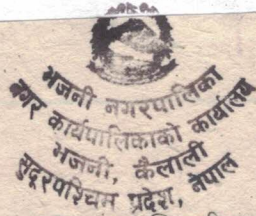 भजनी नगरपालिका
नगर कार्यपालिकाको कार्यालय
भजनी, कैलाली
सुदूरपश्चिम प्रदेश, नेपाल